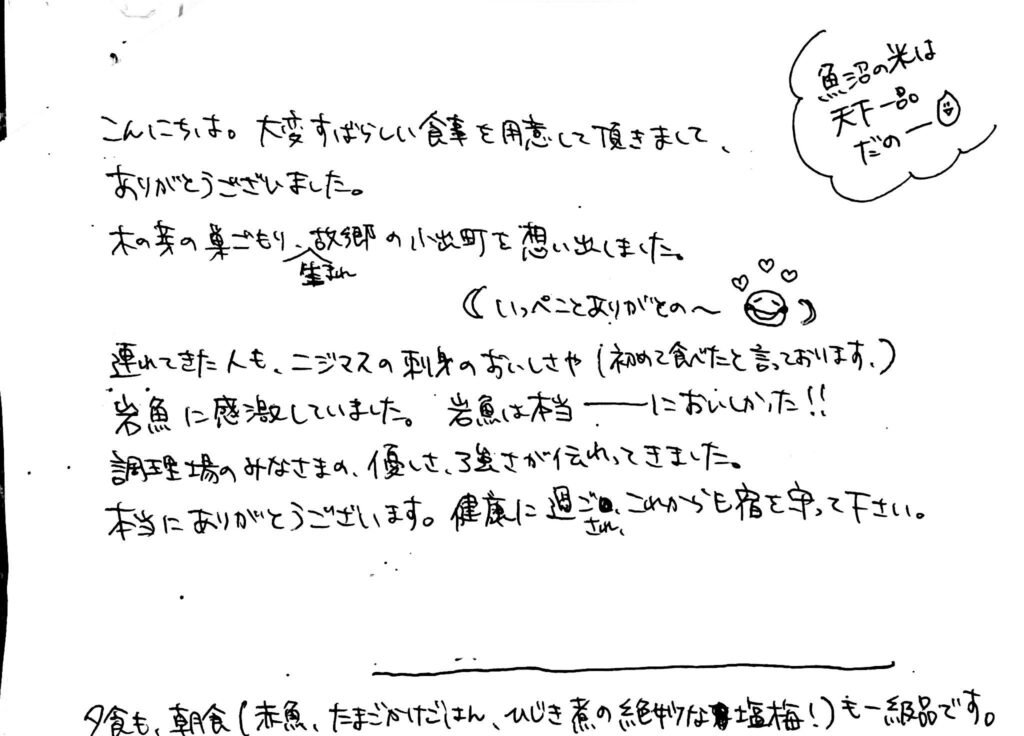 魚沼の米は
天下一品
だのー
こんにちは。大変すばらしい食事を用意して頂きまして、
ありがとうございました。
木の芽の巣ごもり、生まれ故郷の小出町を想い出しました。
(いっぺことありがとの〜)
連れてきた人も、ニジマスの刺身のおいしさや(初めて食べたと言っております、)
岩魚に感激していました。 岩魚は本当――においしかった!!
調理場のみなさまの、優しさ、強さが伝わってきました。
本当にありがとうございます。健康に過ごされ、これからも宿を守って下さい。
夕食も、朝食(赤魚、たまごかけごはん、ひじき煮の絶妙な塩梅!)も一級品です。